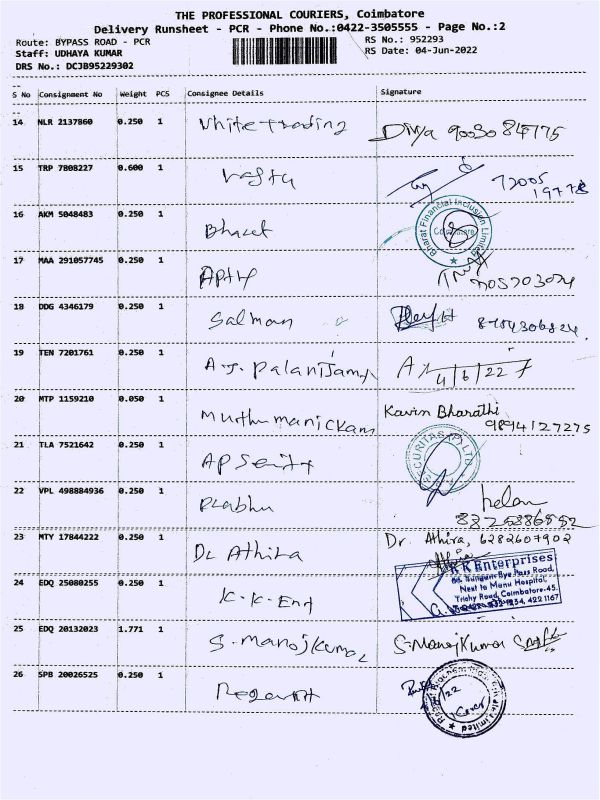 THE PROFESSIONAL COURIERS, Coimbatore
Delivery Runsheet - PCR - Phone No.:0422-3505555 - Page No.:2
Route: BYPASS ROAD - PCR
RS No.: 952293
Staff: UDHAYA KUMAR
RS Date: 04-Jun-2022
DRS No.: DCJB95229302
S No Consignment No Weight PCS Consignee Details Signature
14 NLR 2137860 0.250 1 White trading Divya 9003084775
15 TRP 7808227 0.600 1 72005
19778
16 AKM 5048483 0.250 1 Bharat
Bharat Financial Inclusion Limited
Coimbatore
17 MAA 291057745 0.250 1
18 DDG 4346179 0.250 1 Salman 8784306824
19 TEN 7201761 0.250 1 A.J. Palanisamy
4/6/22
20 MTP 1159210 0.050 1 Muthumanickam Kavin Bharathi
9894127275
21 TLA 7521642 0.250 1 AP Security
SECURITAS (P) LTD
22 VPL 498884936 0.250 1 Prabhu
23 MTY 17844222 0.250 1 Dr Athira Dr. Athira, 6282607902
24 EDQ 25080255 0.250 1 K.K. Ent
K K Enterprises
Bye Pass Road,
Next to Manu Hospital,
Trichy Road, Coimbatore-45.
25 EDQ 20132023 1.771 1 S. Manoj Kumar S. Manoj Kumar
26 SPB 20026525 0.250 1